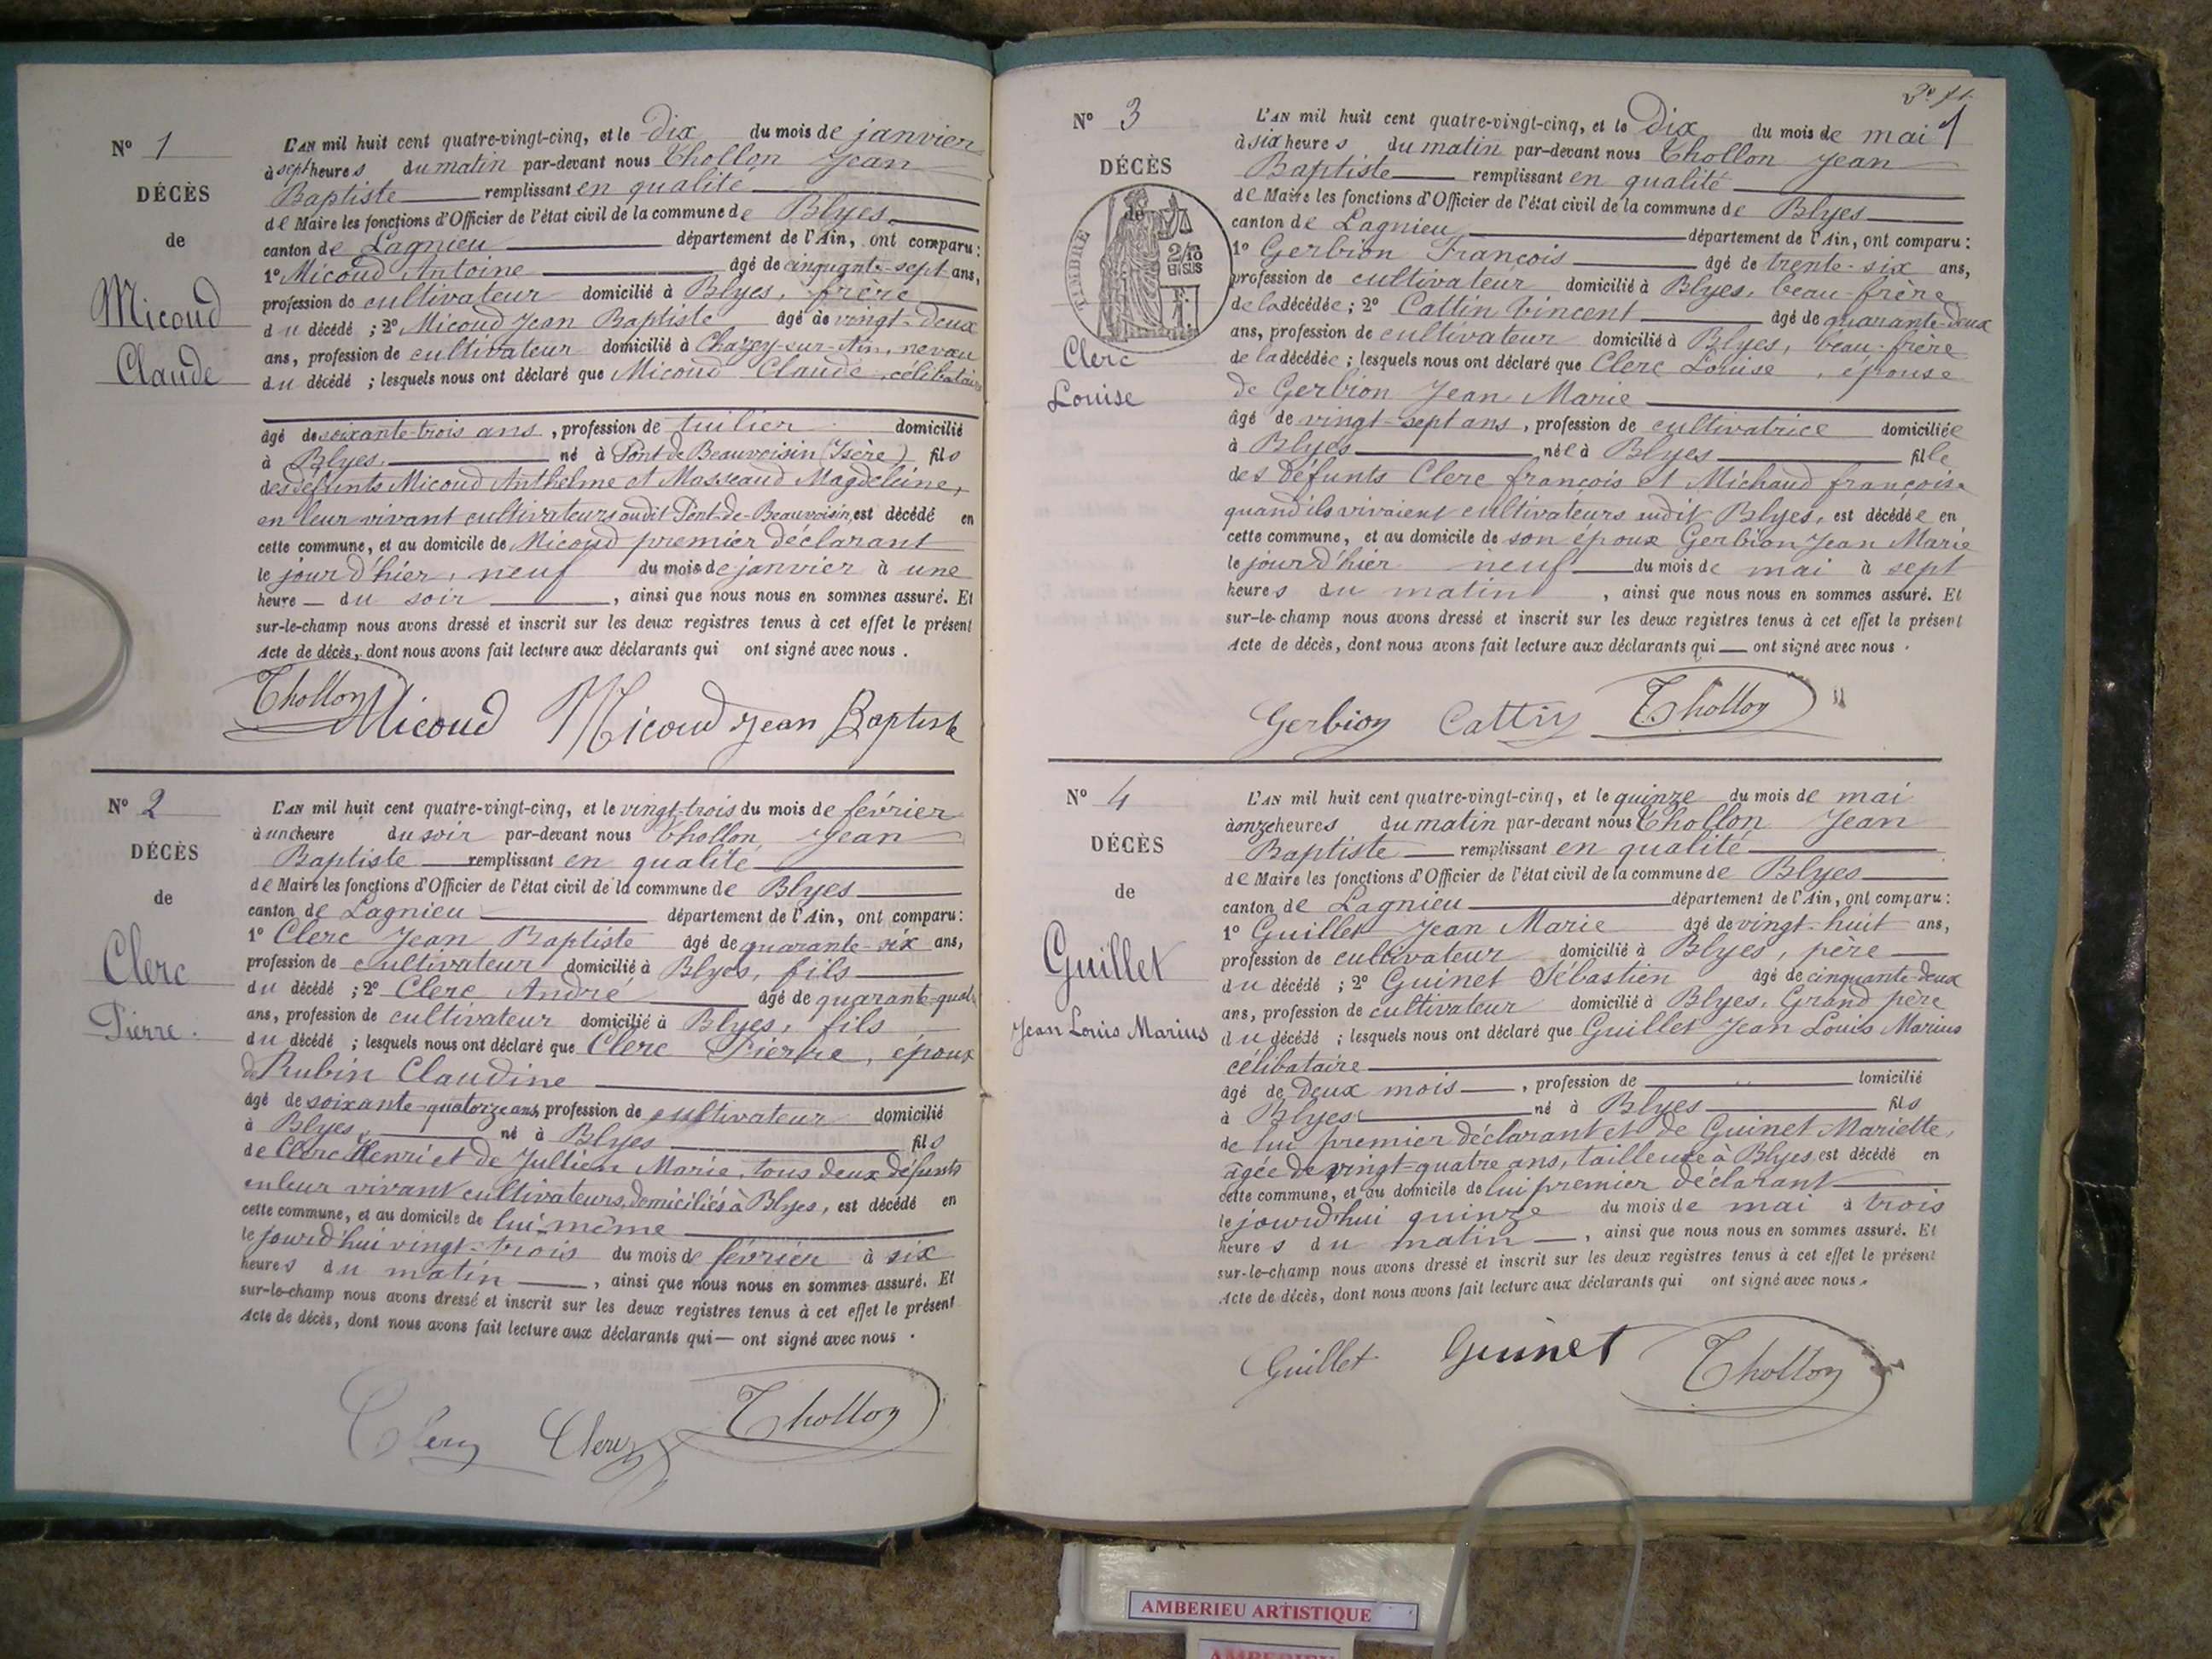 Nº 1
DÉCÈS
de
Micoud
Claude
L'AN mil huit cent quatre-vingt-cinq, et le Dix du mois de janvier
à sept heures du matin par-devant nous Thollon Jean
Baptiste remplissant en qualité
de Maire les fonctions d'Officier de l'état civil de la commune de Blyes
canton de Lagnieu département de l'Ain, ont comparu :
1º Micoud Antoine âgé de cinquante-sept ans,
profession de cultivateur domicilié à Blyes, frère
du décédé ; 2º Micoud Jean Baptiste âgé de vingt-deux
ans, profession de cultivateur domicilié à Chazey-sur-Ain, neveu
du décédé ; lesquels nous ont déclaré que Micoud Claude célibataire
âgé de soixante-trois ans, profession de tuilier domicilié
à Blyes né à Pont de Beauvoisin (Isère) fils
des défunts Micoud Anthelme et Masseaud Magdeleine,
en leur vivant cultivateurs audit Pont-de-Beauvoisin, est décédé en
cette commune, et au domicile de Micoud premier déclarant
le jour d'hier, neuf du mois de janvier à une
heure du soir, ainsi que nous nous en sommes assuré. Et
sur-le-champ nous avons dressé et inscrit sur les deux registres tenus à cet effet le présent
Acte de décès, dont nous avons fait lecture aux déclarants qui ont signé avec nous.
Thollon Micoud Micoud Jean Baptiste
Nº 2
DÉCÈS
de
Clerc
Pierre.
L'AN mil huit cent quatre-vingt-cinq, et le vingt-trois du mois de février
à une heure du soir par-devant nous Thollon Jean
Baptiste remplissant en qualité
de Maire les fonctions d'Officier de l'état civil de la commune de Blyes
canton de Lagnieu département de l'Ain, ont comparu :
1º Clerc Jean Baptiste âgé de quarante-six ans,
profession de cultivateur domicilié à Blyes, fils
du décédé ; 2º Clerc André âgé de
ans, profession de cultivateur domicilié à Blyes, fils
du décédé ; lesquels nous ont déclaré que Clerc Pierre, époux
de Rubin Claudine
âgé de soixante-quatorze ans, profession de cultivateur domicilié
à Blyes, né à Blyes fils
de Clerc Henri et de Jullien Marie, tous deux défunts
en leur vivant cultivateurs, domiciliés à Blyes, est décédé en
cette commune, et au domicile de lui-même
le jourd'hui vingt-trois du mois de février à six
heures du matin, ainsi que nous nous en sommes assuré. Et
sur-le-champ nous avons dressé et inscrit sur les deux registres tenus à cet effet le présent
Acte de décès, dont nous avons fait lecture aux déclarants qui — ont signé avec nous.
Clerc Clerc Thollon
Nº 3
DÉCÈS
de
TIMBRE
2/10
EN SUS
Clerc
Louise
L'AN mil huit cent quatre-vingt-cinq, et le Dix du mois de mai
à six heures du matin par-devant nous Thollon Jean
Baptiste remplissant en qualité
de Maire les fonctions d'Officier de l'état civil de la commune de Blyes
canton de Lagnieu département de l'Ain, ont comparu :
1º Gerbion François âgé de trente-six ans,
profession de cultivateur domicilié à Blyes, beau-frère
de la décédée ; 2º Cattin Vincent âgé de quarante-deux
ans, profession de cultivateur domicilié à Blyes, beau-frère
de la décédée ; lesquels nous ont déclaré que Clerc Louise, épouse
de Gerbion Jean Marie
âgé de vingt-sept ans, profession de cultivatrice domiciliée
à Blyes née à Blyes fille
des défunts Clerc françois et Michaud françoise
quand ils vivaient cultivateurs audit Blyes, est décédée en
cette commune, et au domicile de son époux Gerbion Jean Marie
le jour d'hier neuf du mois de mai à sept
heures du matin, ainsi que nous nous en sommes assuré. Et
sur-le-champ nous avons dressé et inscrit sur les deux registres tenus à cet effet le présent
Acte de décès, dont nous avons fait lecture aux déclarants qui — ont signé avec nous.
Gerbion Cattin Thollon
Nº 4
DÉCÈS
de
Guillet
Jean Louis Marius
L'AN mil huit cent quatre-vingt-cinq, et le quinze du mois de mai
à onze heures du matin par-devant nous Thollon Jean
Baptiste remplissant en qualité
de Maire les fonctions d'Officier de l'état civil de la commune de Blyes
canton de Lagnieu département de l'Ain, ont comparu :
1º Guillet Jean Marie âgé de vingt-huit ans,
profession de cultivateur domicilié à Blyes, père
du décédé ; 2º Guinet Sébastien âgé de cinquante-deux
ans, profession de cultivateur domicilié à Blyes, Grand père
du décédé ; lesquels nous ont déclaré que Guillet Jean Louis Marius
célibataire
âgé de Deux mois, profession de domicilié
à Blyes né à Blyes fils
de lui premier déclarant et de Guinet Mariette,
âgée de vingt-quatre ans, tailleuse à Blyes est décédé en
cette commune, et au domicile de lui premier déclarant
le jourd'hui quinze du mois de mai à trois
heures du matin, ainsi que nous nous en sommes assuré. Et
sur-le-champ nous avons dressé et inscrit sur les deux registres tenus à cet effet le présent
Acte de décès, dont nous avons fait lecture aux déclarants qui ont signé avec nous.
Guillet Guinet Thollon
AMBERIEU ARTISTIQUE
AMBERIEU